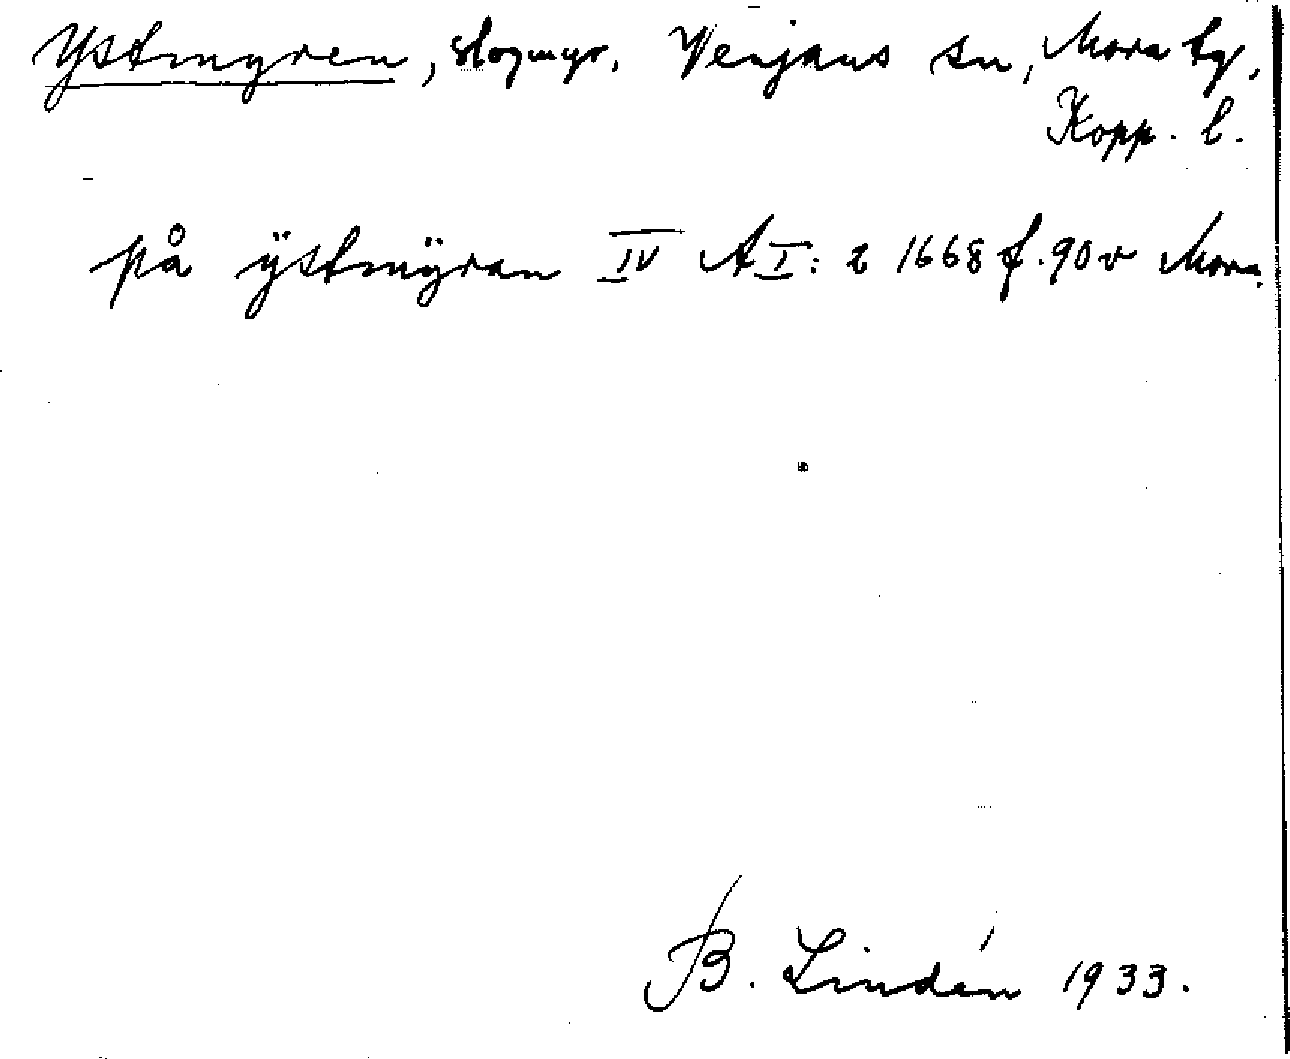 Ystmyren, slogmyr. Venjans sn, Mora tg,
Kopp. l.
på ÿstmÿran IV A I: 2 1668 f. 90 v Mora.
B. Lindén 1933.